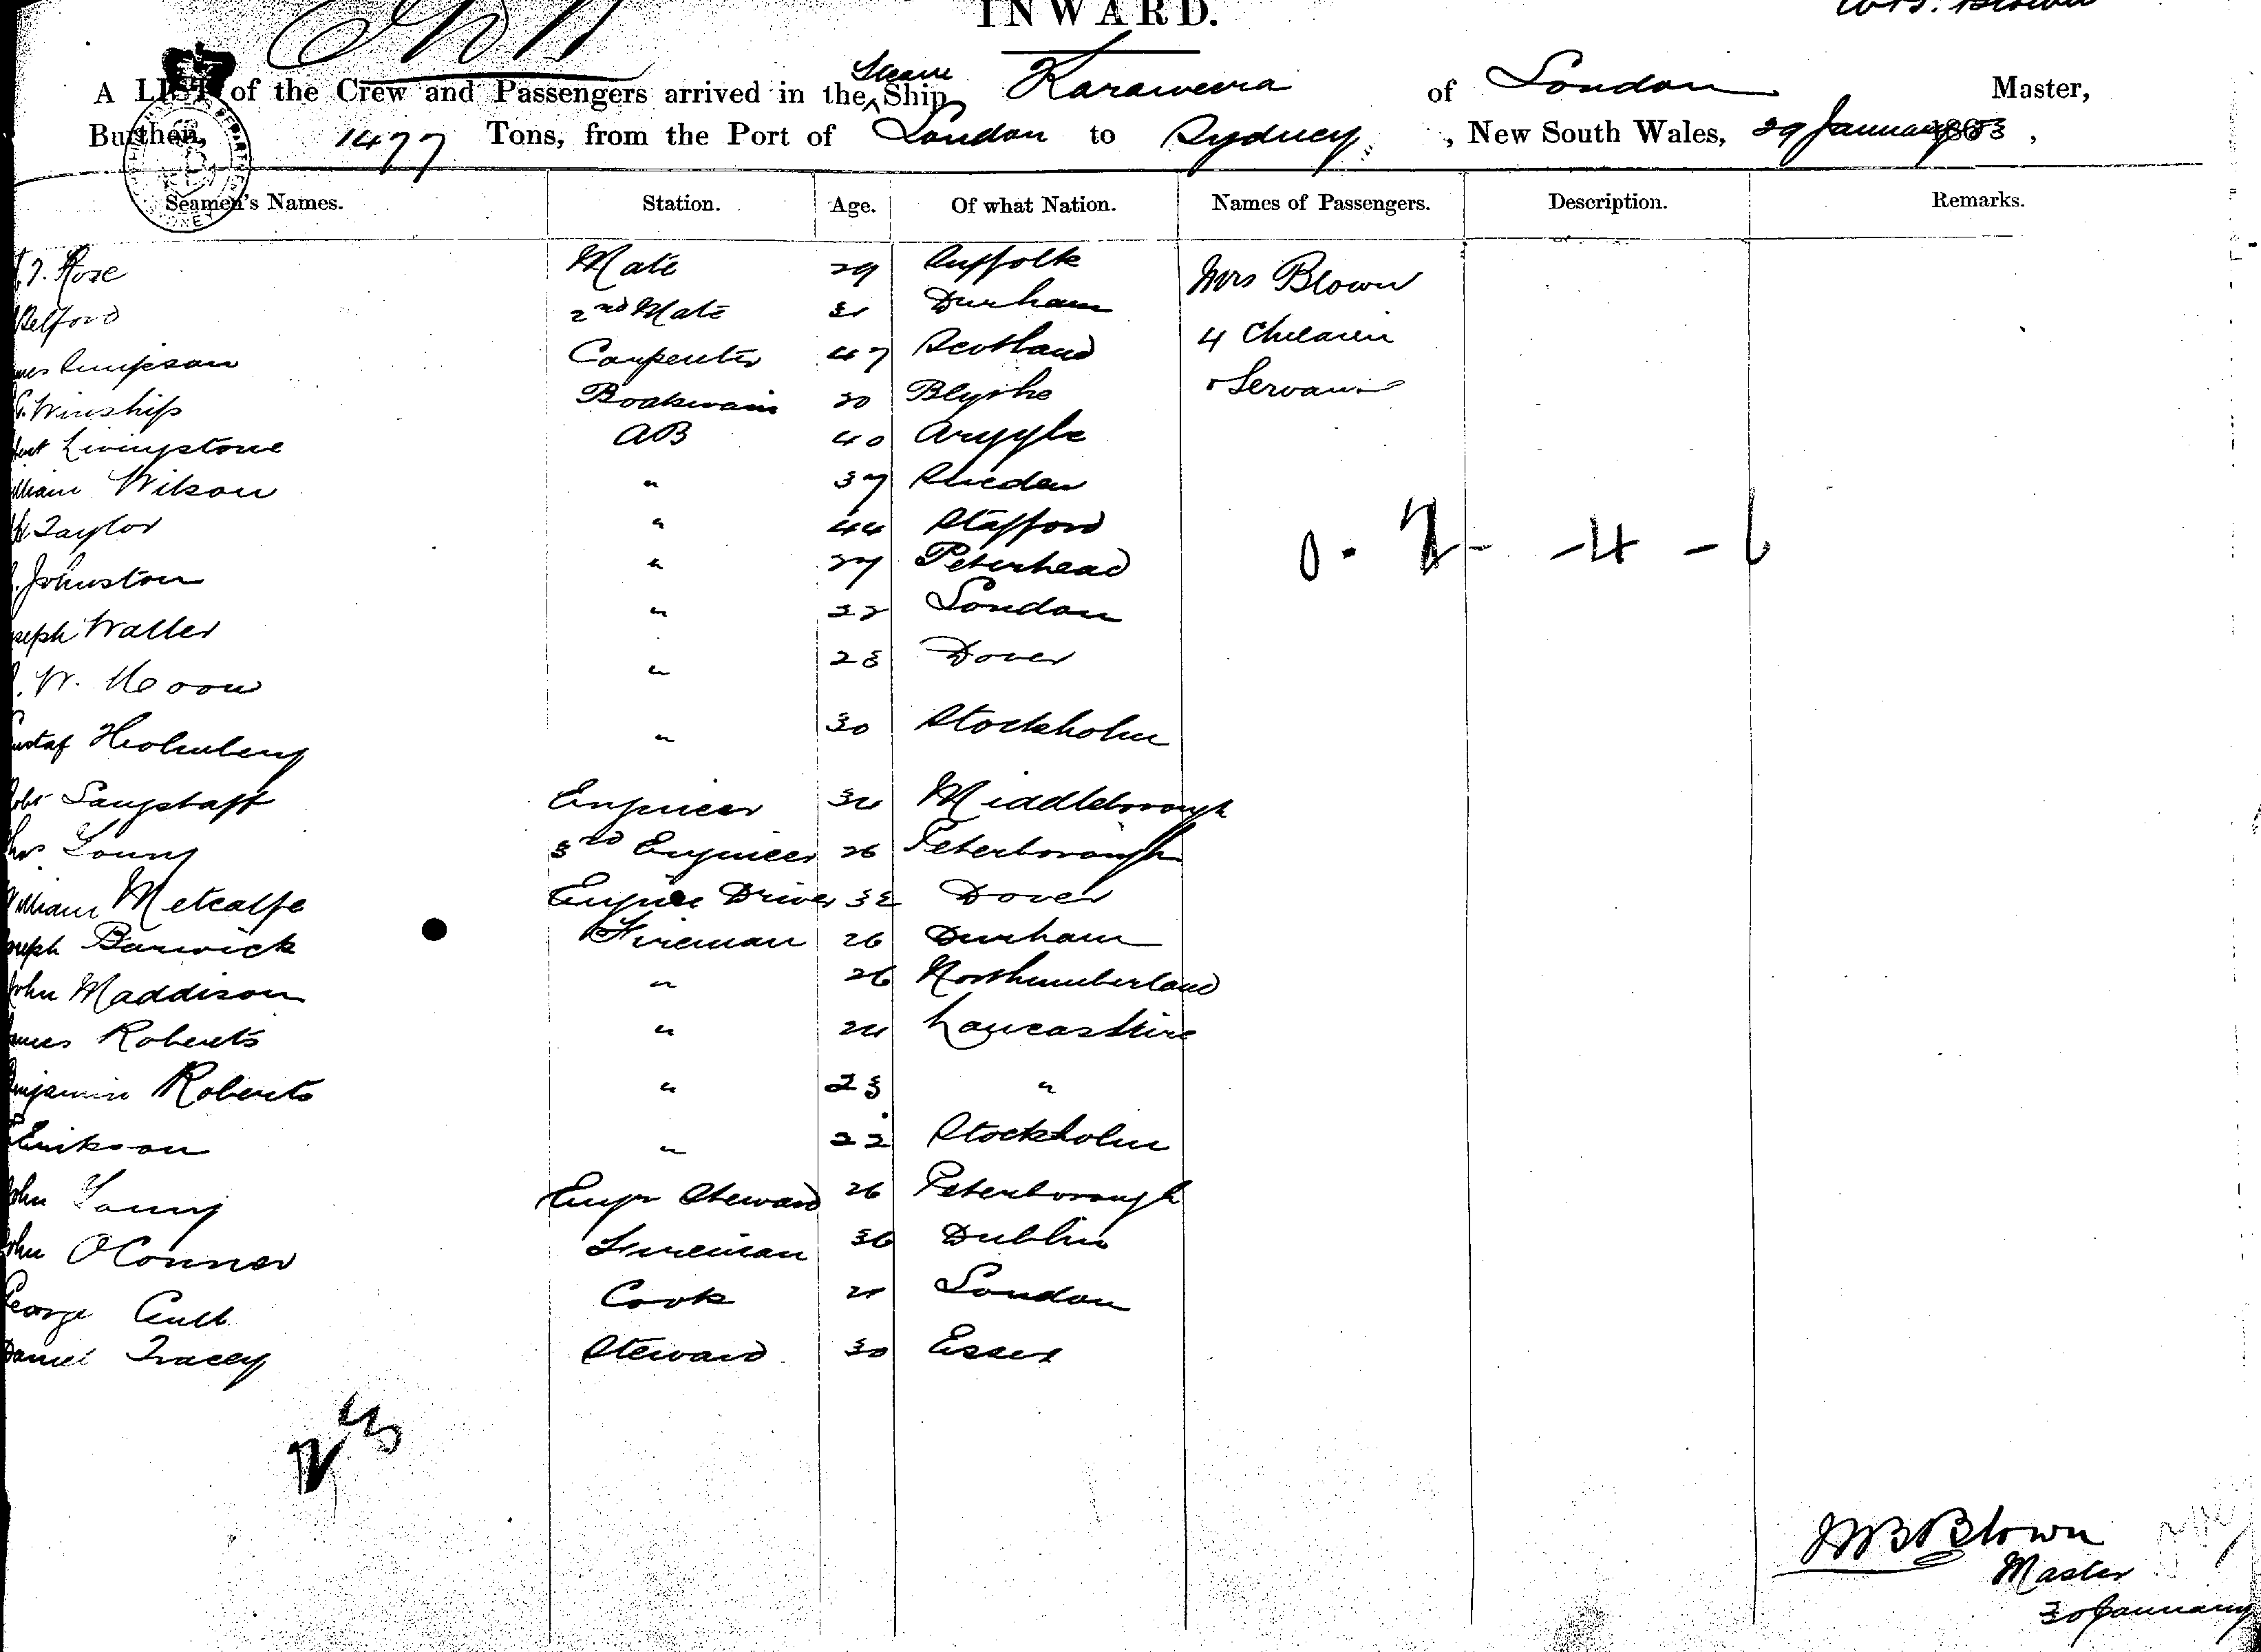 INWARD.
A LIST of the Crew and Passengers arrived in the Steam Ship Karaweera of London Master,
Burthen, 1477 Tons, from the Port of London to Sydney, New South Wales, 29 January 1883,
Seamen's Names. Station. Age. Of what Nation. Names of Passengers. Description. Remarks.
Rose Mate 29 Suffolk Mrs Blown
Belford 2nd Mate 31 Durham 4 Children
Simpson Carpenter 47 Scotland Servant
Winship Boatswain 30 Blythe
Livingstone AB 40 Argyle
William Wilson " 37 Sweden
Taylor " 44 Stafford
Johnston " 27 Peterhead
Joseph Waller " London
W. Moon " 28 Dover
0 - 2 - - 4 - 6
Gustaf Holmberg " 30 Stockholm
Robt Langstaff Engineer 34 Middleborough
Thos Young 3rd Engineer 26 Peterborough
William Metcalfe Engine Driver 32 Dover
Joseph Barwick Fireman 26 Durham
John Maddison " 26 Northumberland
James Roberts " 24 Lancashire
Benjamin Roberts " 23 "
Erikson " 22 Stockholm
John Young Engr Steward 26 Peterborough
John O'Connor Fireman 36 Dublin
George Cook 21 London
Daniel Tracey Steward 30 Essex
23
Blown
Master
30 January